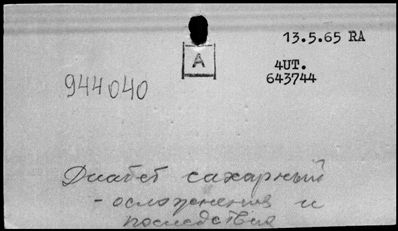 13.5.65 RA
A
4UT.
643744
944040
Диабет сахарный
-осложнения и
последствия